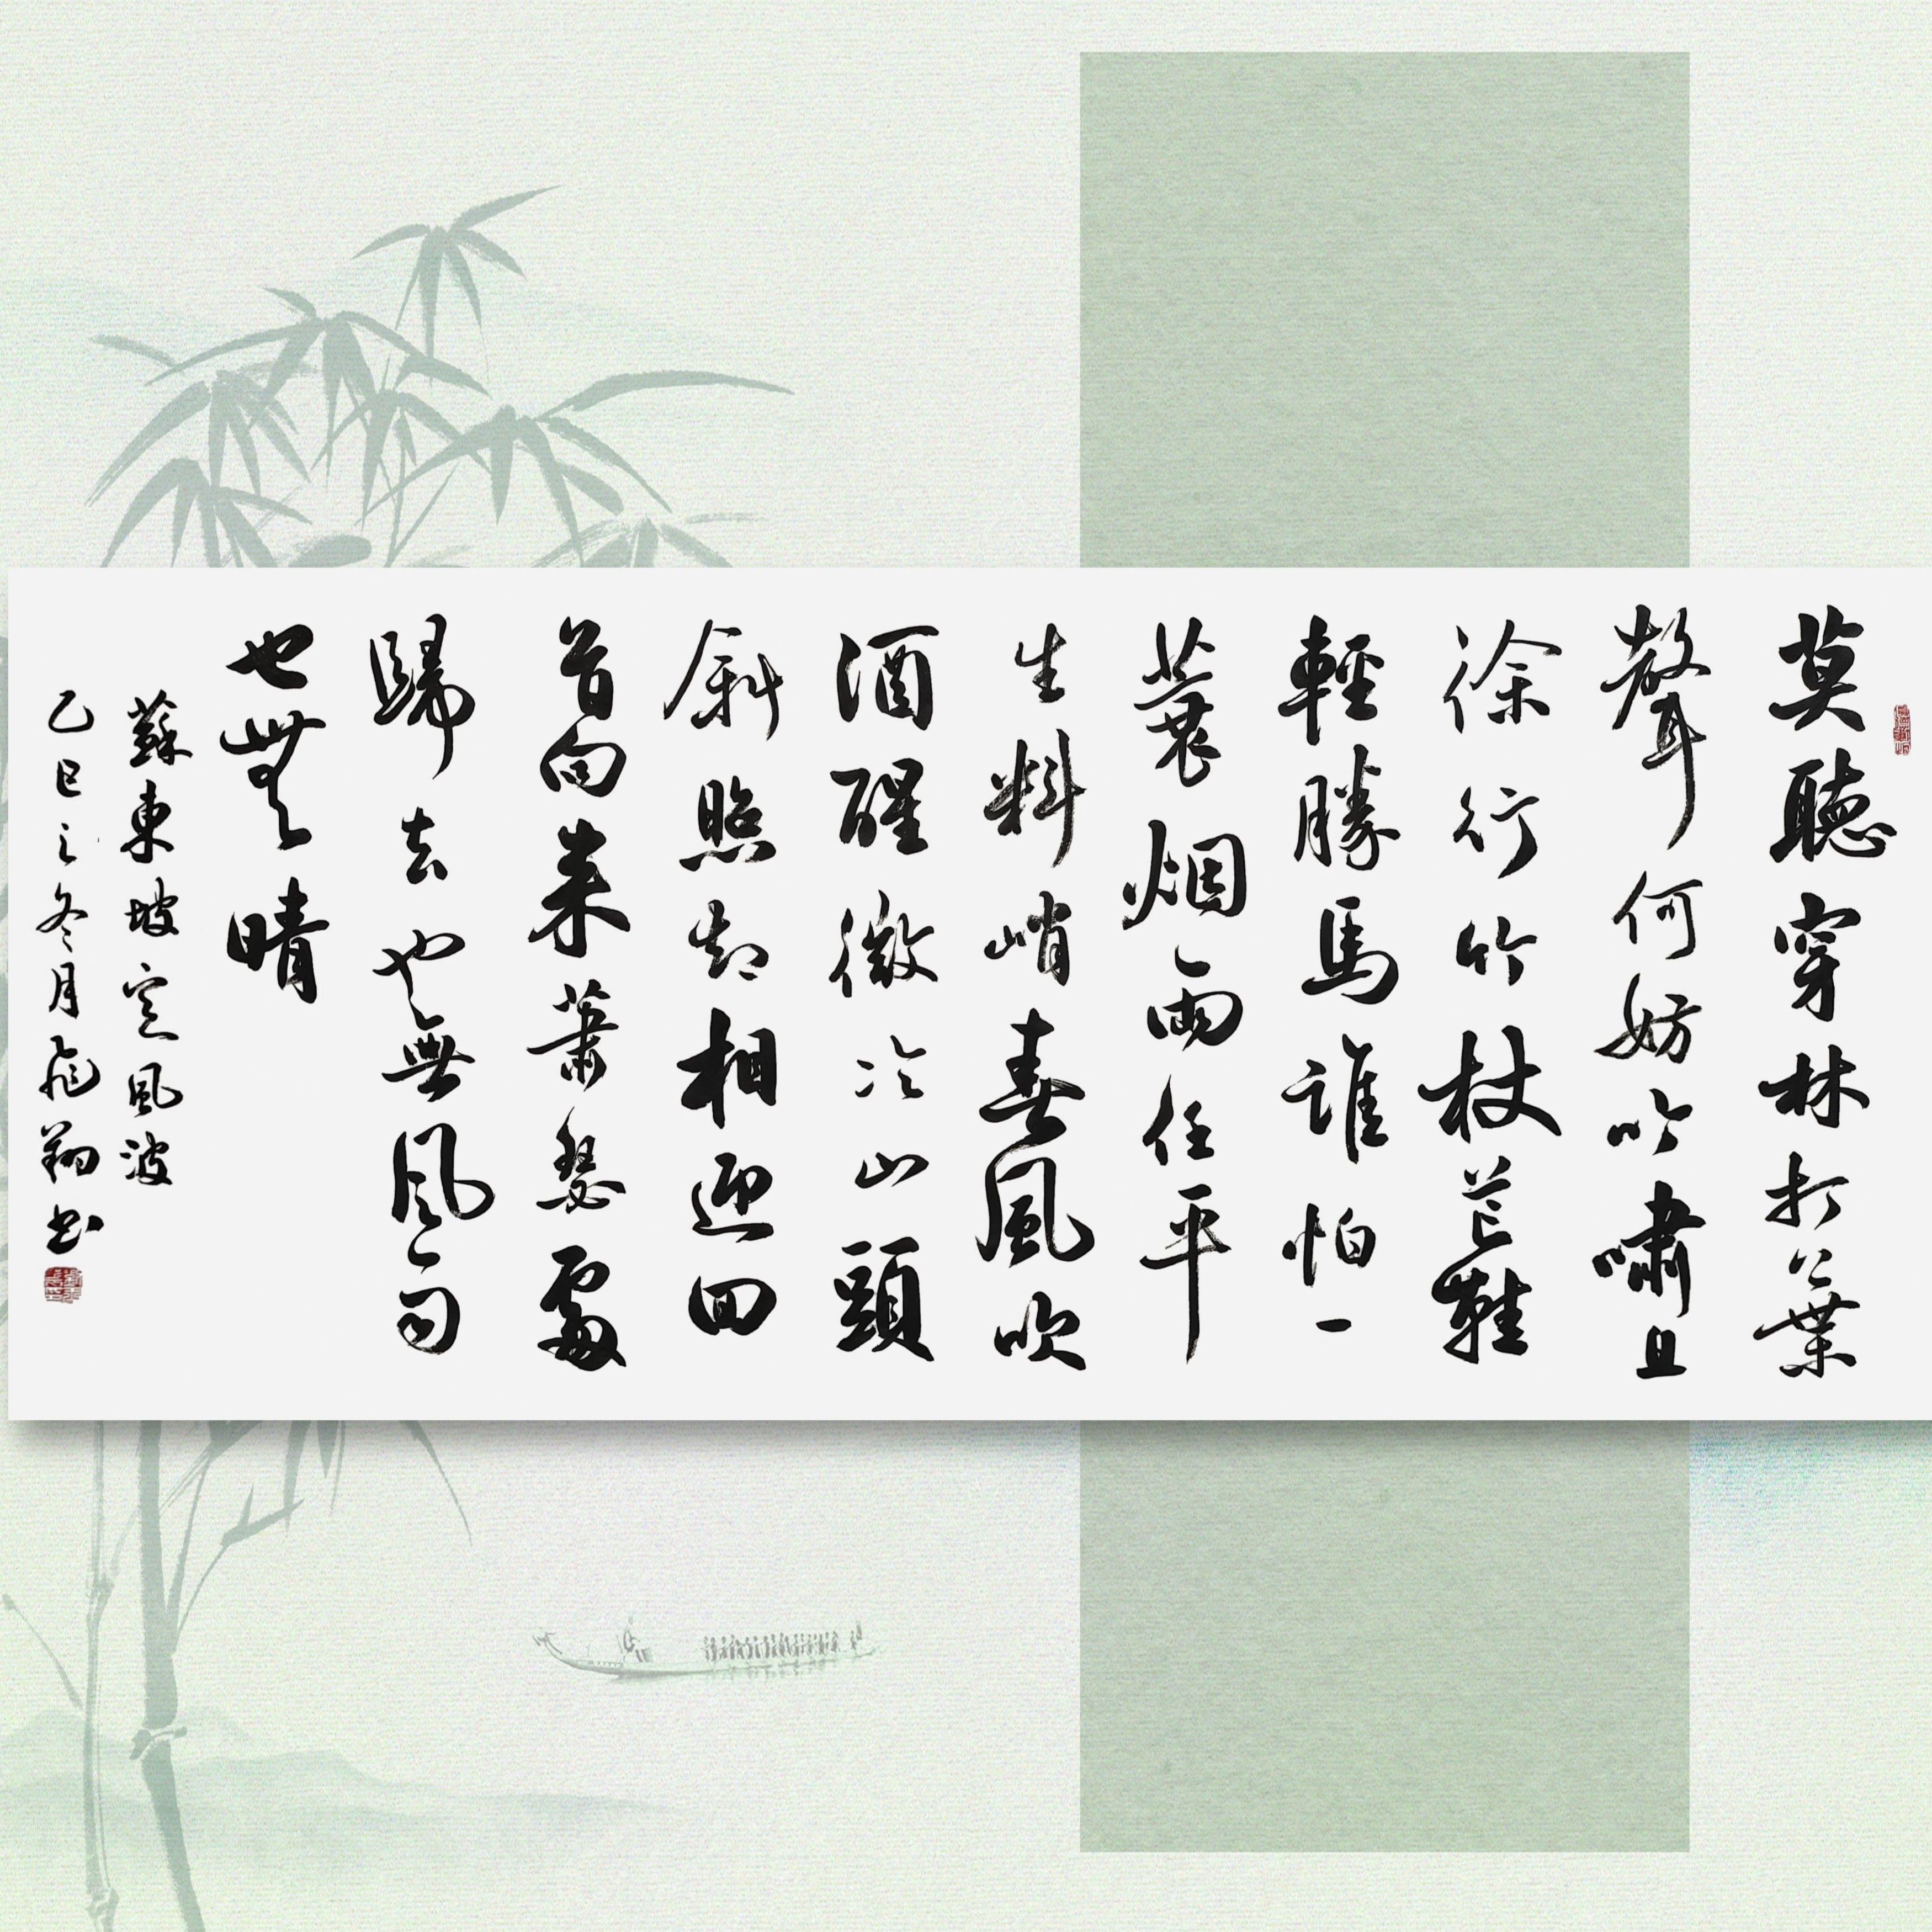 莫聽穿林打葉
聲何妨吟嘯且
徐行竹杖芒鞋
輕勝馬誰怕一
蓑烟雨任平
生料峭春風吹
酒醒微冷山頭
斜照却相迎回
首向来蕭瑟處
歸去也無風雨
也無晴
蘇東坡定風波
乙巳之冬月飛翔书